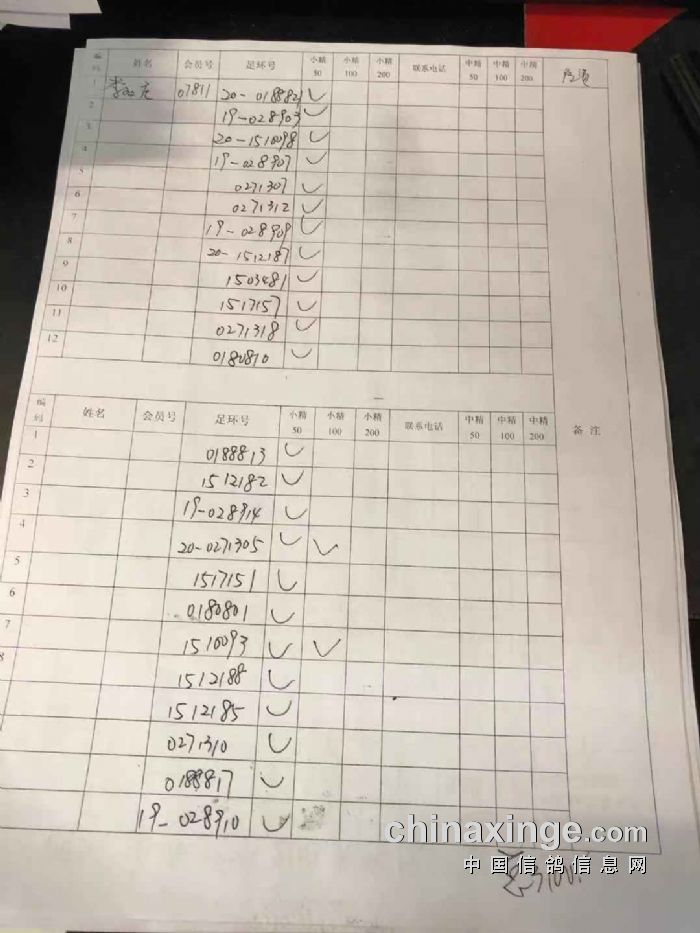 编码 姓名 会员号 足环号 小精50 小精100 小精200 联系电话 中精50 中精100 中精200
1 07811 20-0188821 ✓
2 19-028903 ✓
3 20-1510098 ✓
4 19-028907 ✓
5 0271307 ✓
6 0271312 ✓
7 19-028909 ✓
8 20-1512187 ✓
9 1503481 ✓
10 1517157 ✓
11 0271318 ✓
12 0180810 ✓
编码 姓名 会员号 足环号 小精50 小精100 小精200 联系电话 中精50 中精100 中精200 备注
1 0188813 ✓
2 1512182 ✓
3 19-028914 ✓
4 20-0271305 ✓ ✓
5 1517151 ✓
6 0180801 ✓
7 1510093 ✓ ✓
8 1512188 ✓
1512185 ✓
0271310 ✓
0188817 ✓
19-028910 ✓
chinaxinge.com
中国信鸽信息网